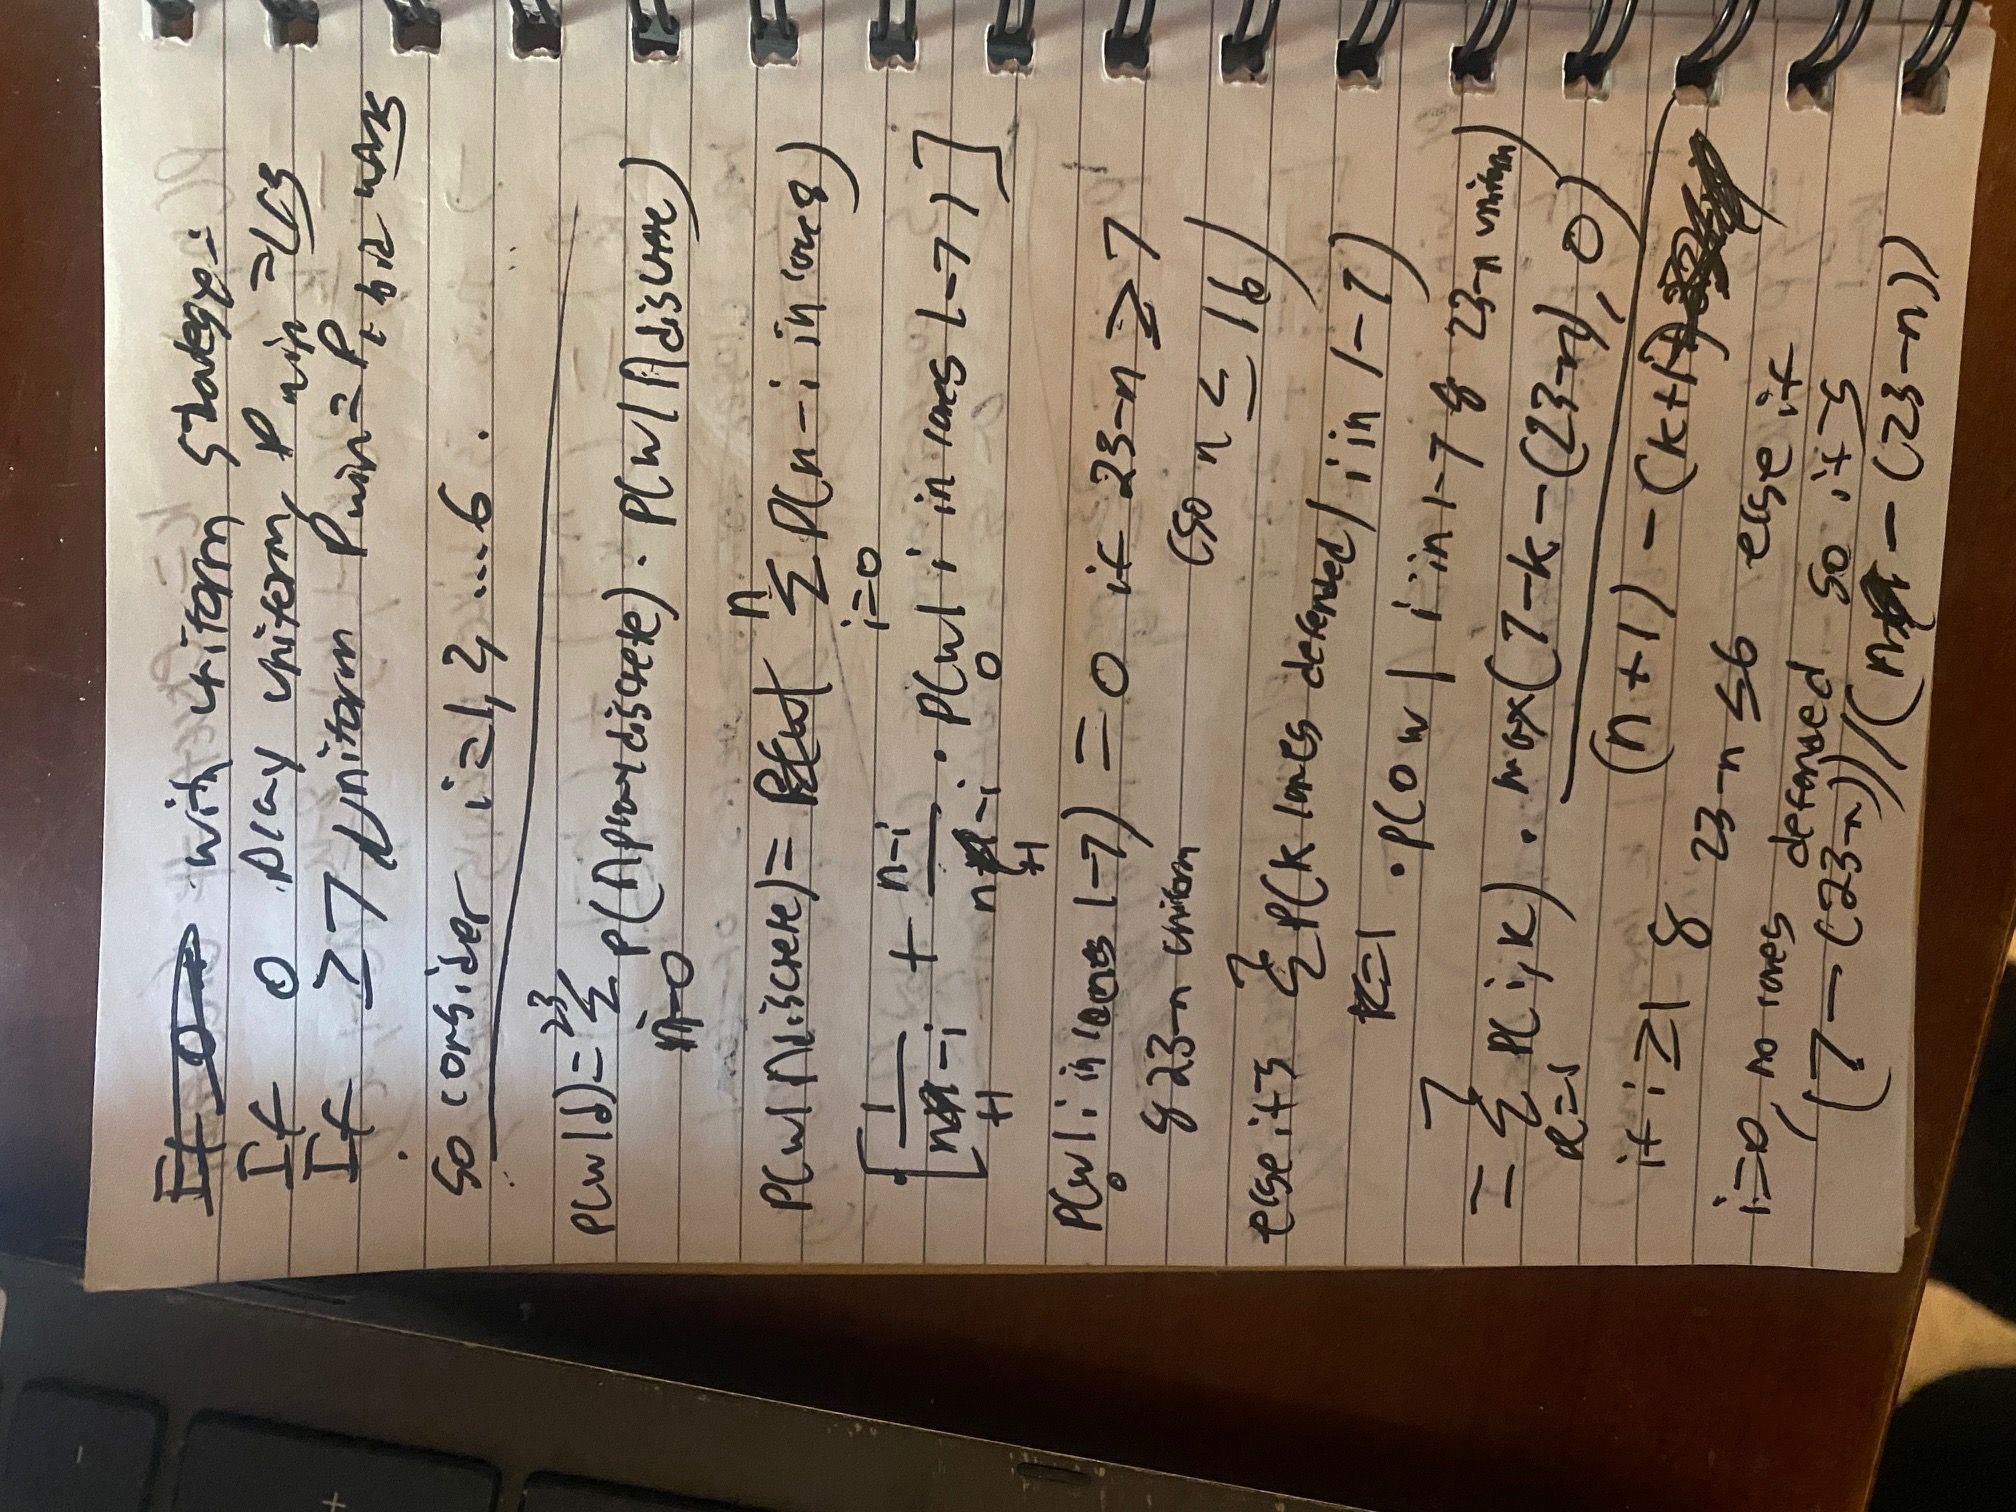 with uniform strategy:
If 0 play uniform, P win = 1/3
If ≥7 uniform P win = P
so consider i=1, 2, ...6.
P(w|d) = 23 Σ n=0 P(n play discrete) · P(w|n discrete)
P(w|n discrete) = n Σ i=0 P(n-i in lane 8)
[1/(n+1-i) + (n-i)/(n+1-i) · P(w0| i in lanes 1-7)]
P(w0| i in lanes 1-7) = 0 if 23-n ≥ 7
& 23-n uniform (so n ≤ 16)
else it's 7 Σ k=1 P(k lanes defended | i in 1-7)
· P(0 w | i in 1-7 & 23-n uniform)
= 7 Σ P(i,k) · max(7-k-(23-n), 0)/((n+1) - (k+1))
if i≥1 & 23-n ≤6 else if
i=0, no lanes defended so it's
(7-(23-n))/(n - (23-n))